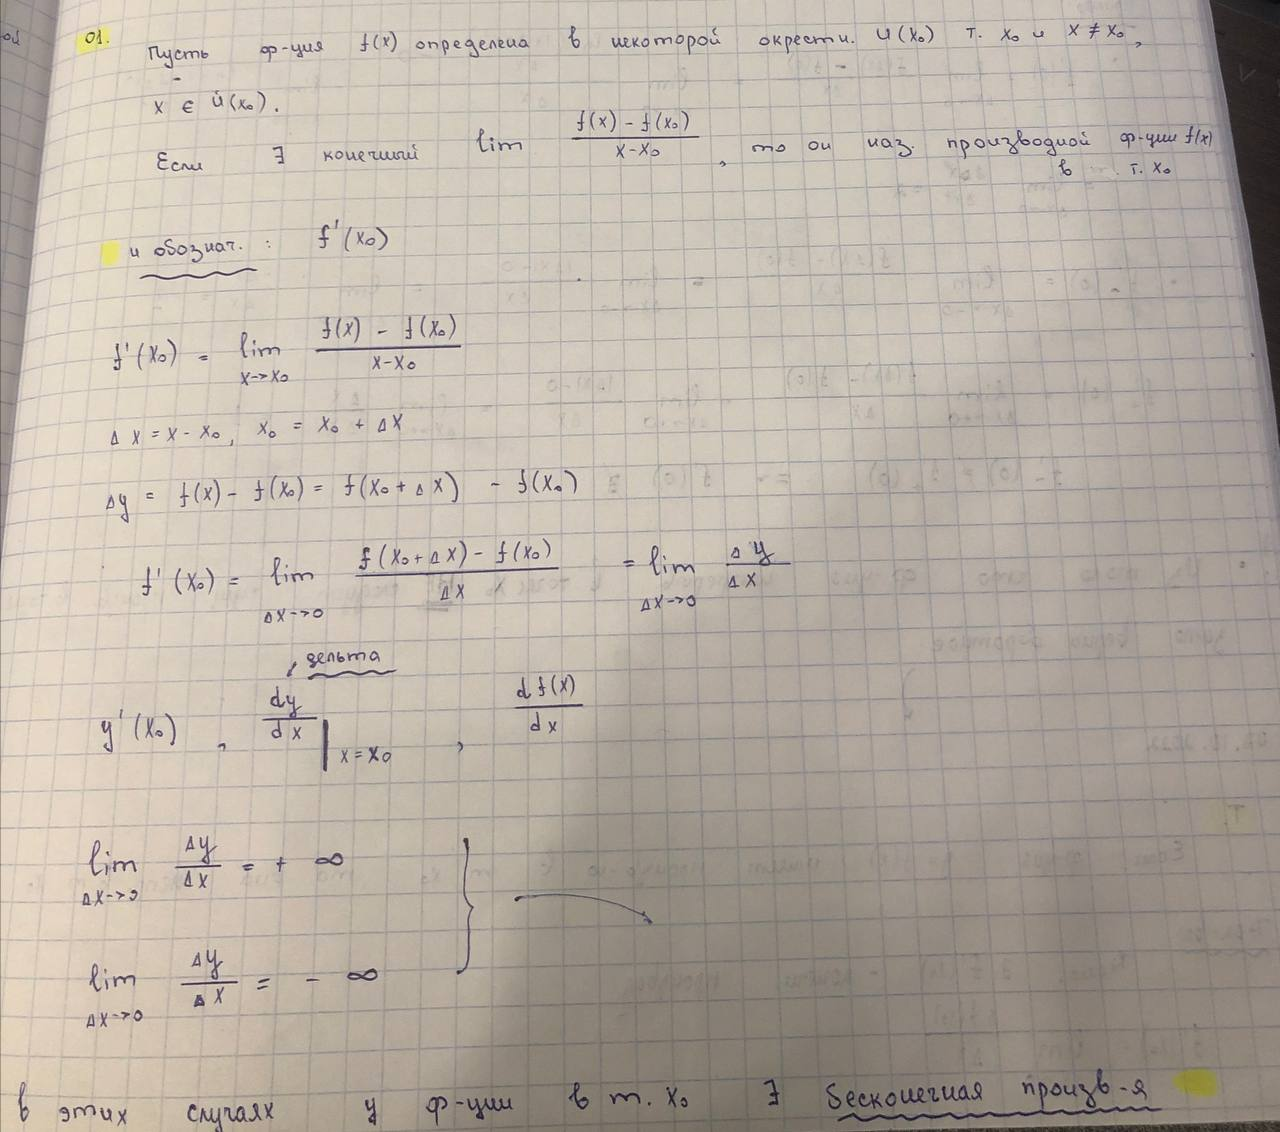 01. Пусть ф-ция f(x) определена в некоторой окрестн. U(x₀) т. x₀ и x ≠ x₀,
x ∈ Ů(x₀).
Если ∃ конечный lim (f(x) - f(x₀))/(x-x₀), то он наз. производной ф-ции f(x)
в т. x₀
и обознач. : f'(x₀)
f'(x₀) = lim x→x₀ (f(x) - f(x₀))/(x-x₀)
Δx = x - x₀, x₀ = x₀ + Δx
Δy = f(x) - f(x₀) = f(x₀ + Δx) - f(x₀)
f'(x₀) = lim Δx→0 (f(x₀+Δx) - f(x₀))/Δx = lim Δx→0 Δy/Δx
дельта
y'(x₀), dy/dx | x = x₀, d f(x)/dx
lim Δx→0 Δy/Δx = + ∞
lim Δx→0 Δy/Δx = - ∞
в этих случаях у ф-ции в т. x₀ ∃ бесконечная произв-я